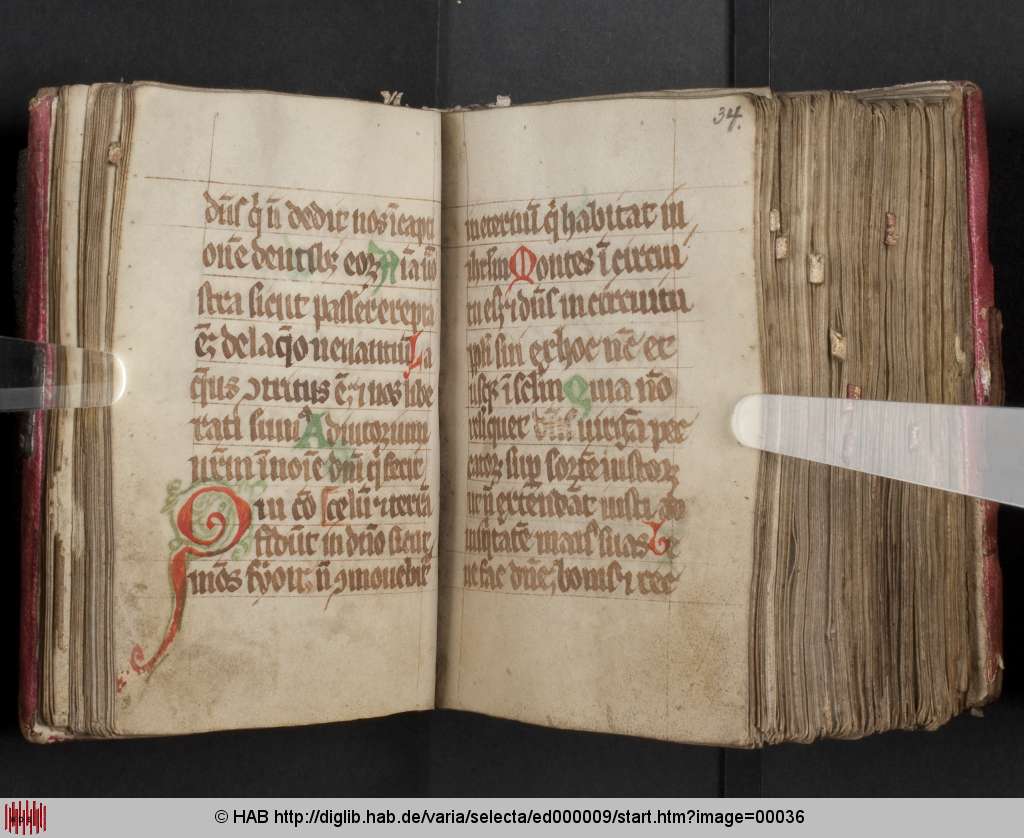 dn̄s q̄ n̄ dedit nos ī capti
onē dentibꝫ eoꝝ Aīa nr̄a
stra sicut passer erepta
ē de laqо̄ uenantiū La
q̄us ꝯtritus ē ⁊ nos libe
rati sum Adiutorium
nr̄m ī noīe dn̄i q̄ fecit
Qui cō scelū ⁊ terrā
fidūt in dn̄o sicut
mōs syon n̄ ꝯmouebit᷑
34.
in eternū q̄ habitat in
ihrlm Montes ī circui
tu eiꝰ ⁊ dn̄s in circuitu
ppli sui ex hoc nc̄ et
usqꝫ ī sclm Quia nō
reliquet dn̄s uirgā pec
catoꝝ sup̱ sortē iustoꝝ
ut n̄ extendāt iusti ad
iniq̄tatē manꝰ suas Be
nefac dn̄e bonis ⁊ rec
© HAB http://diglib.hab.de/varia/selecta/ed000009/start.htm?image=00036